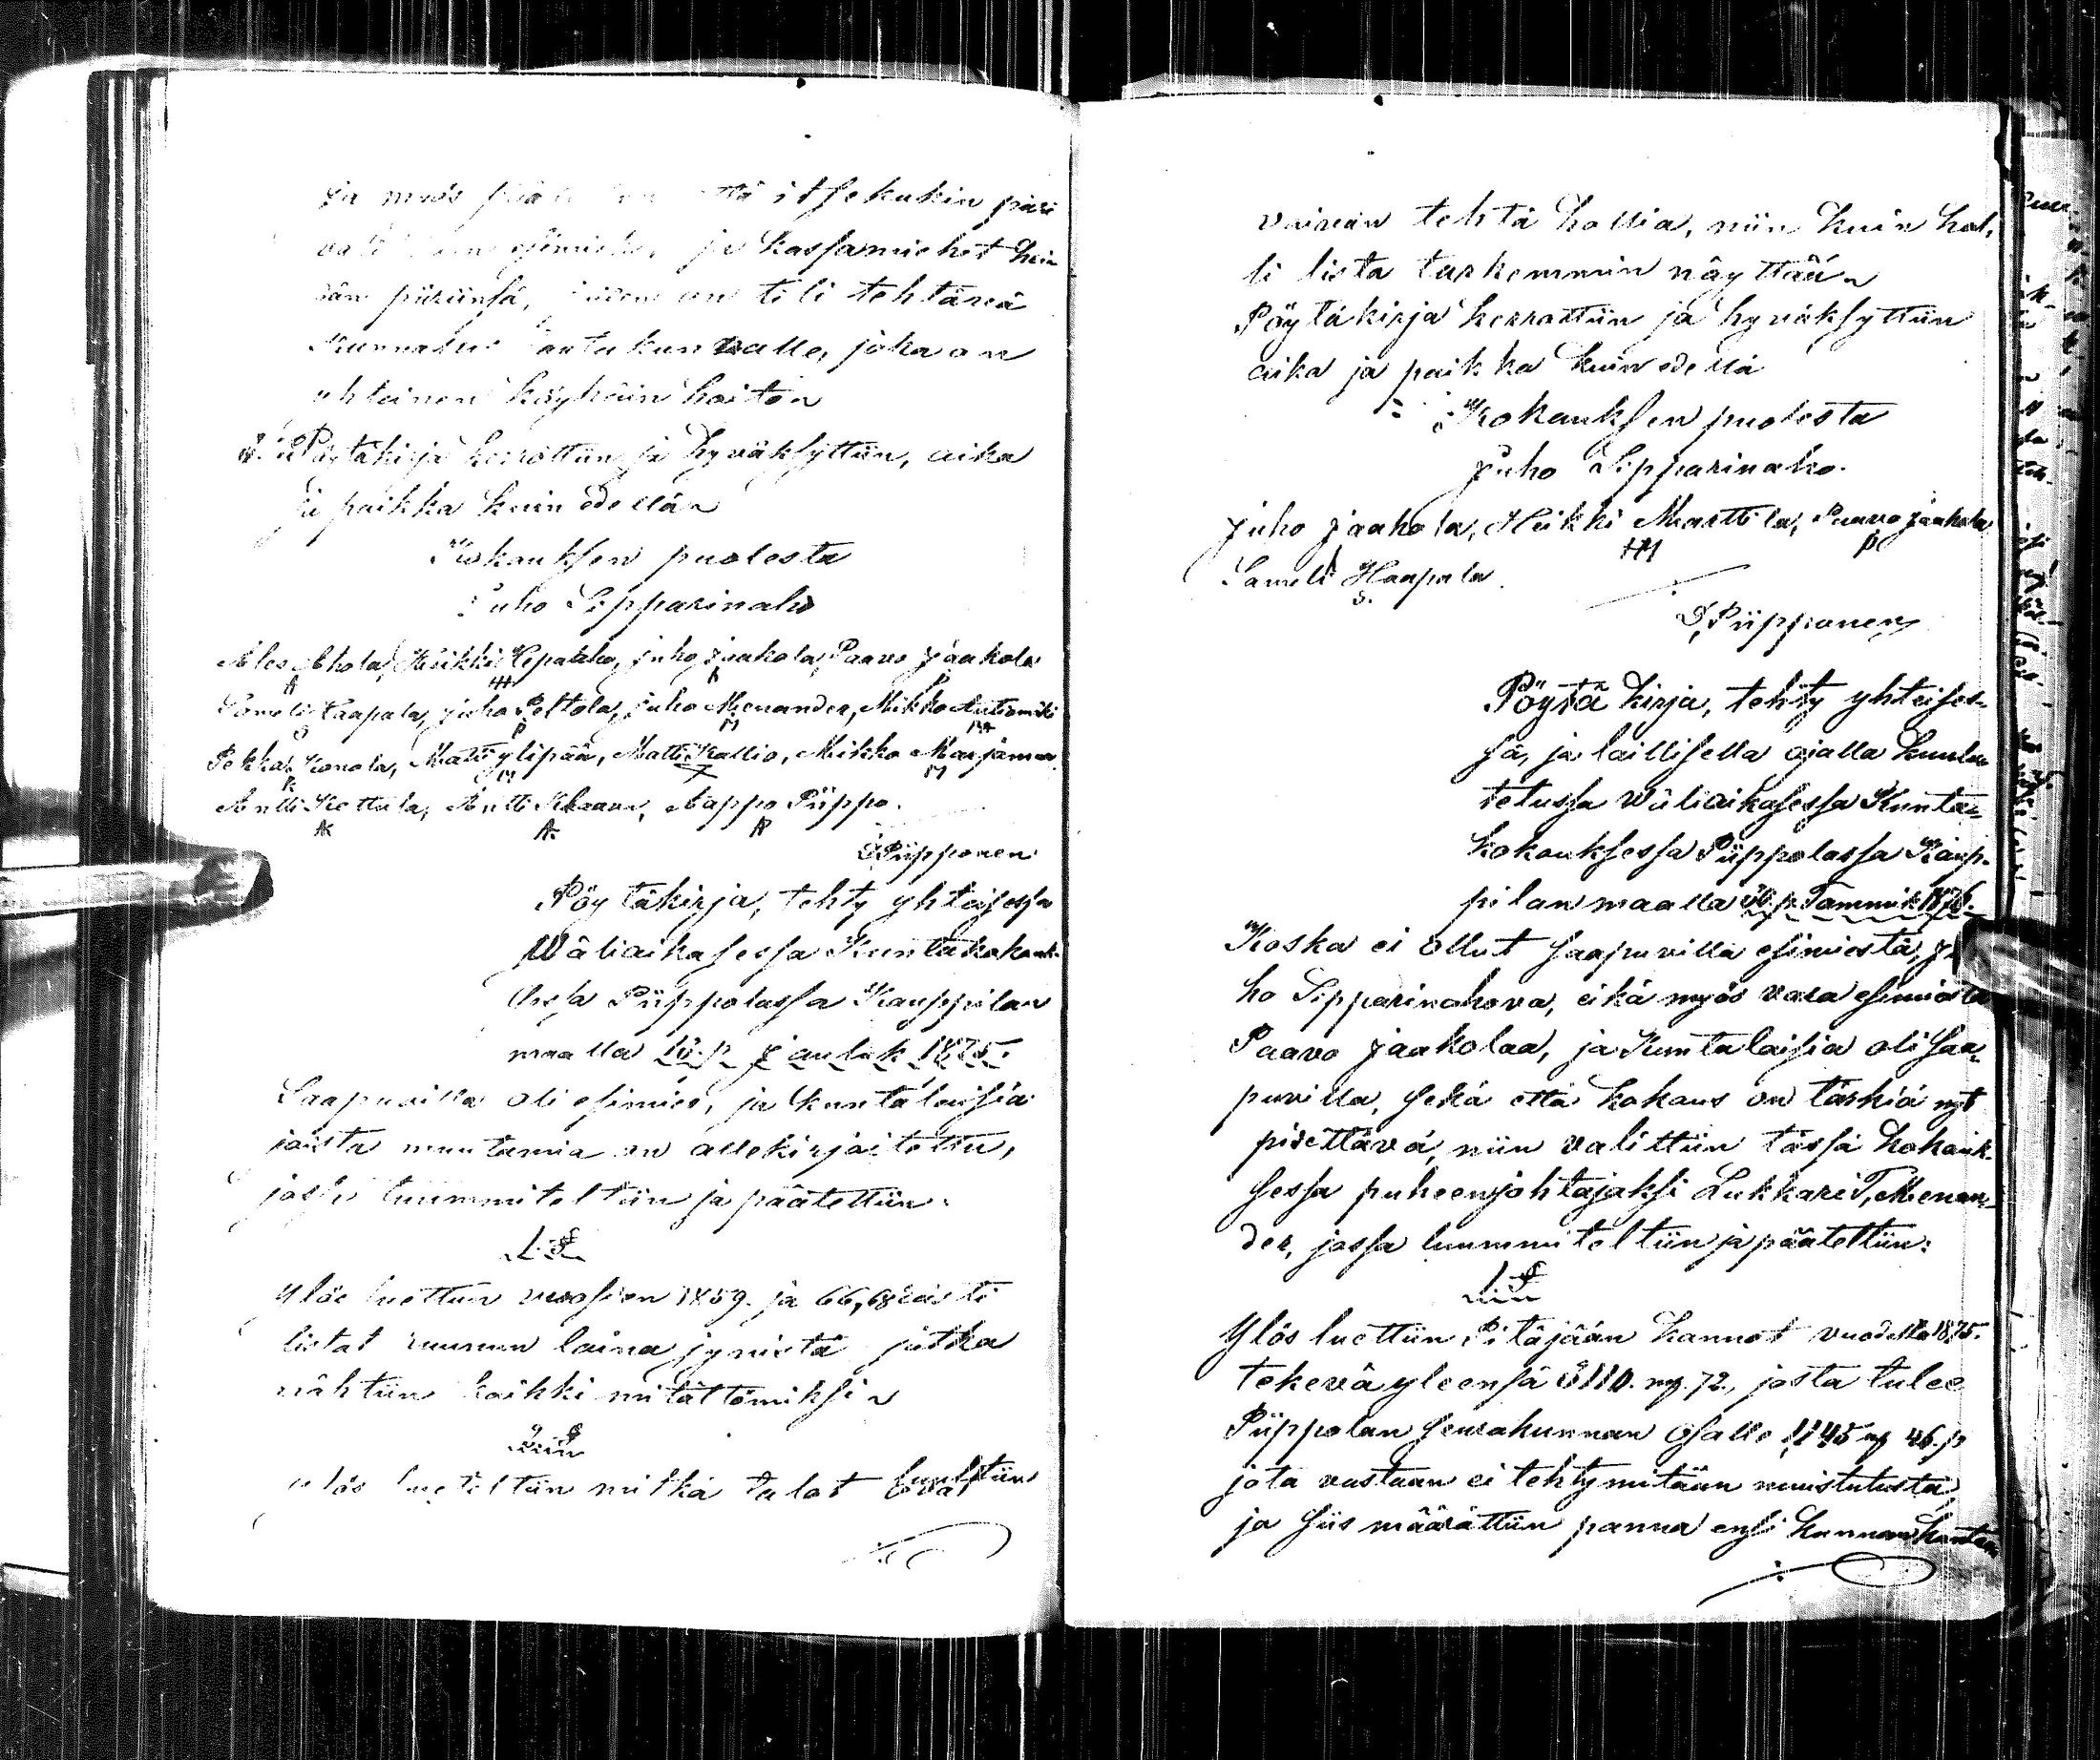 ja itsekukin piiri
ja kassamiehet hein
dän piiriinsä, on tili tehtävä
Kunnallis lautakunnalle, joka on
yhteinen köyhäin hoiton
Pöytäkirja kerrottiin ja hyväksyttiin, aika
ja paikka kuin edellän
Kokouksen puolesta
Juho Sipparinaho
Ales Ahola, Heikki Lepakko, juho Jaakola, Paavo Jaakola
A HH P
Sameli Haapala, juho Peltola, juho Menander, Mikko Autiomäki
S P M MA
Pekka Konola, Matti ylipää, Matti Kallio, Mikko Marjamaa
K M M
Antti Kottila, Antti Aappo Piippo.
AK A. AP
Piipponen
Pöytäkirja, tehty yhteisessa
Wäliaikasessa Kuntakokouk-
sessa Piippolassa Kauppilan
maalla 10. p. jouluk 1875.
Saapuvilla oli esimies, ja kuntalaisia
joista muutamia on allekirjoitettu,
jossa tuummiteltiin ja päätettiin:
1. §
Ylös luettiin vuosien 1859. ja 66,68 rästi
listat ruunun laina jyvistä jotka
nähtiin kaikki mitättömiksi
2. §
ylös lueteltiin mitkä talot luultiin
voivan tehtä hollia, niin kuin hol,
li lista tarkemmin näyttään
Pöytäkirja kerrottiin ja hyväksyttiin
aika ja paikka kuin edellä
Kokouksen puolesta
Juho Sipparinaho.
Juho Jaakola, Heikki Marttila, Paavo Jaakola
HM P
Sameli Haapala.
S.
Piipponen
Pöytä kirja, tehty yhteises-
sä, ja laillisella ajalla kuulu
tetussa Wäliaikasessa Kunta-
kokouksessa Piippolassa Kaup-
pilan maalla 30. p. Tammik 1876.
Koska ei ollut saapuvilla esimiestä, Ju
ho Sipparinahova, eikä myös vara esimiestä
Paavo Jaakolaa, ja Kuntalaisia oli saa-
puvilla, sekä että kokous on tärkiä nyt
pidettävä, niin valittiin tässä kokouk-
sessa puheenjohtajaksi Lukkari T, Menan-
der, jossa tuummiteltiin ja päätettiin:
1. §
Ylös luettiin Pitäjään kannot vuodelta 1875.
tekevä yleensä 3110. mg. 72., josta tulee
Piippolan seurakunnan osalle 1145 mg 46. p
jota vastaan ei tehty mitään muistutusta,
ja siis määrättiin panna ensi kunnan kantoon